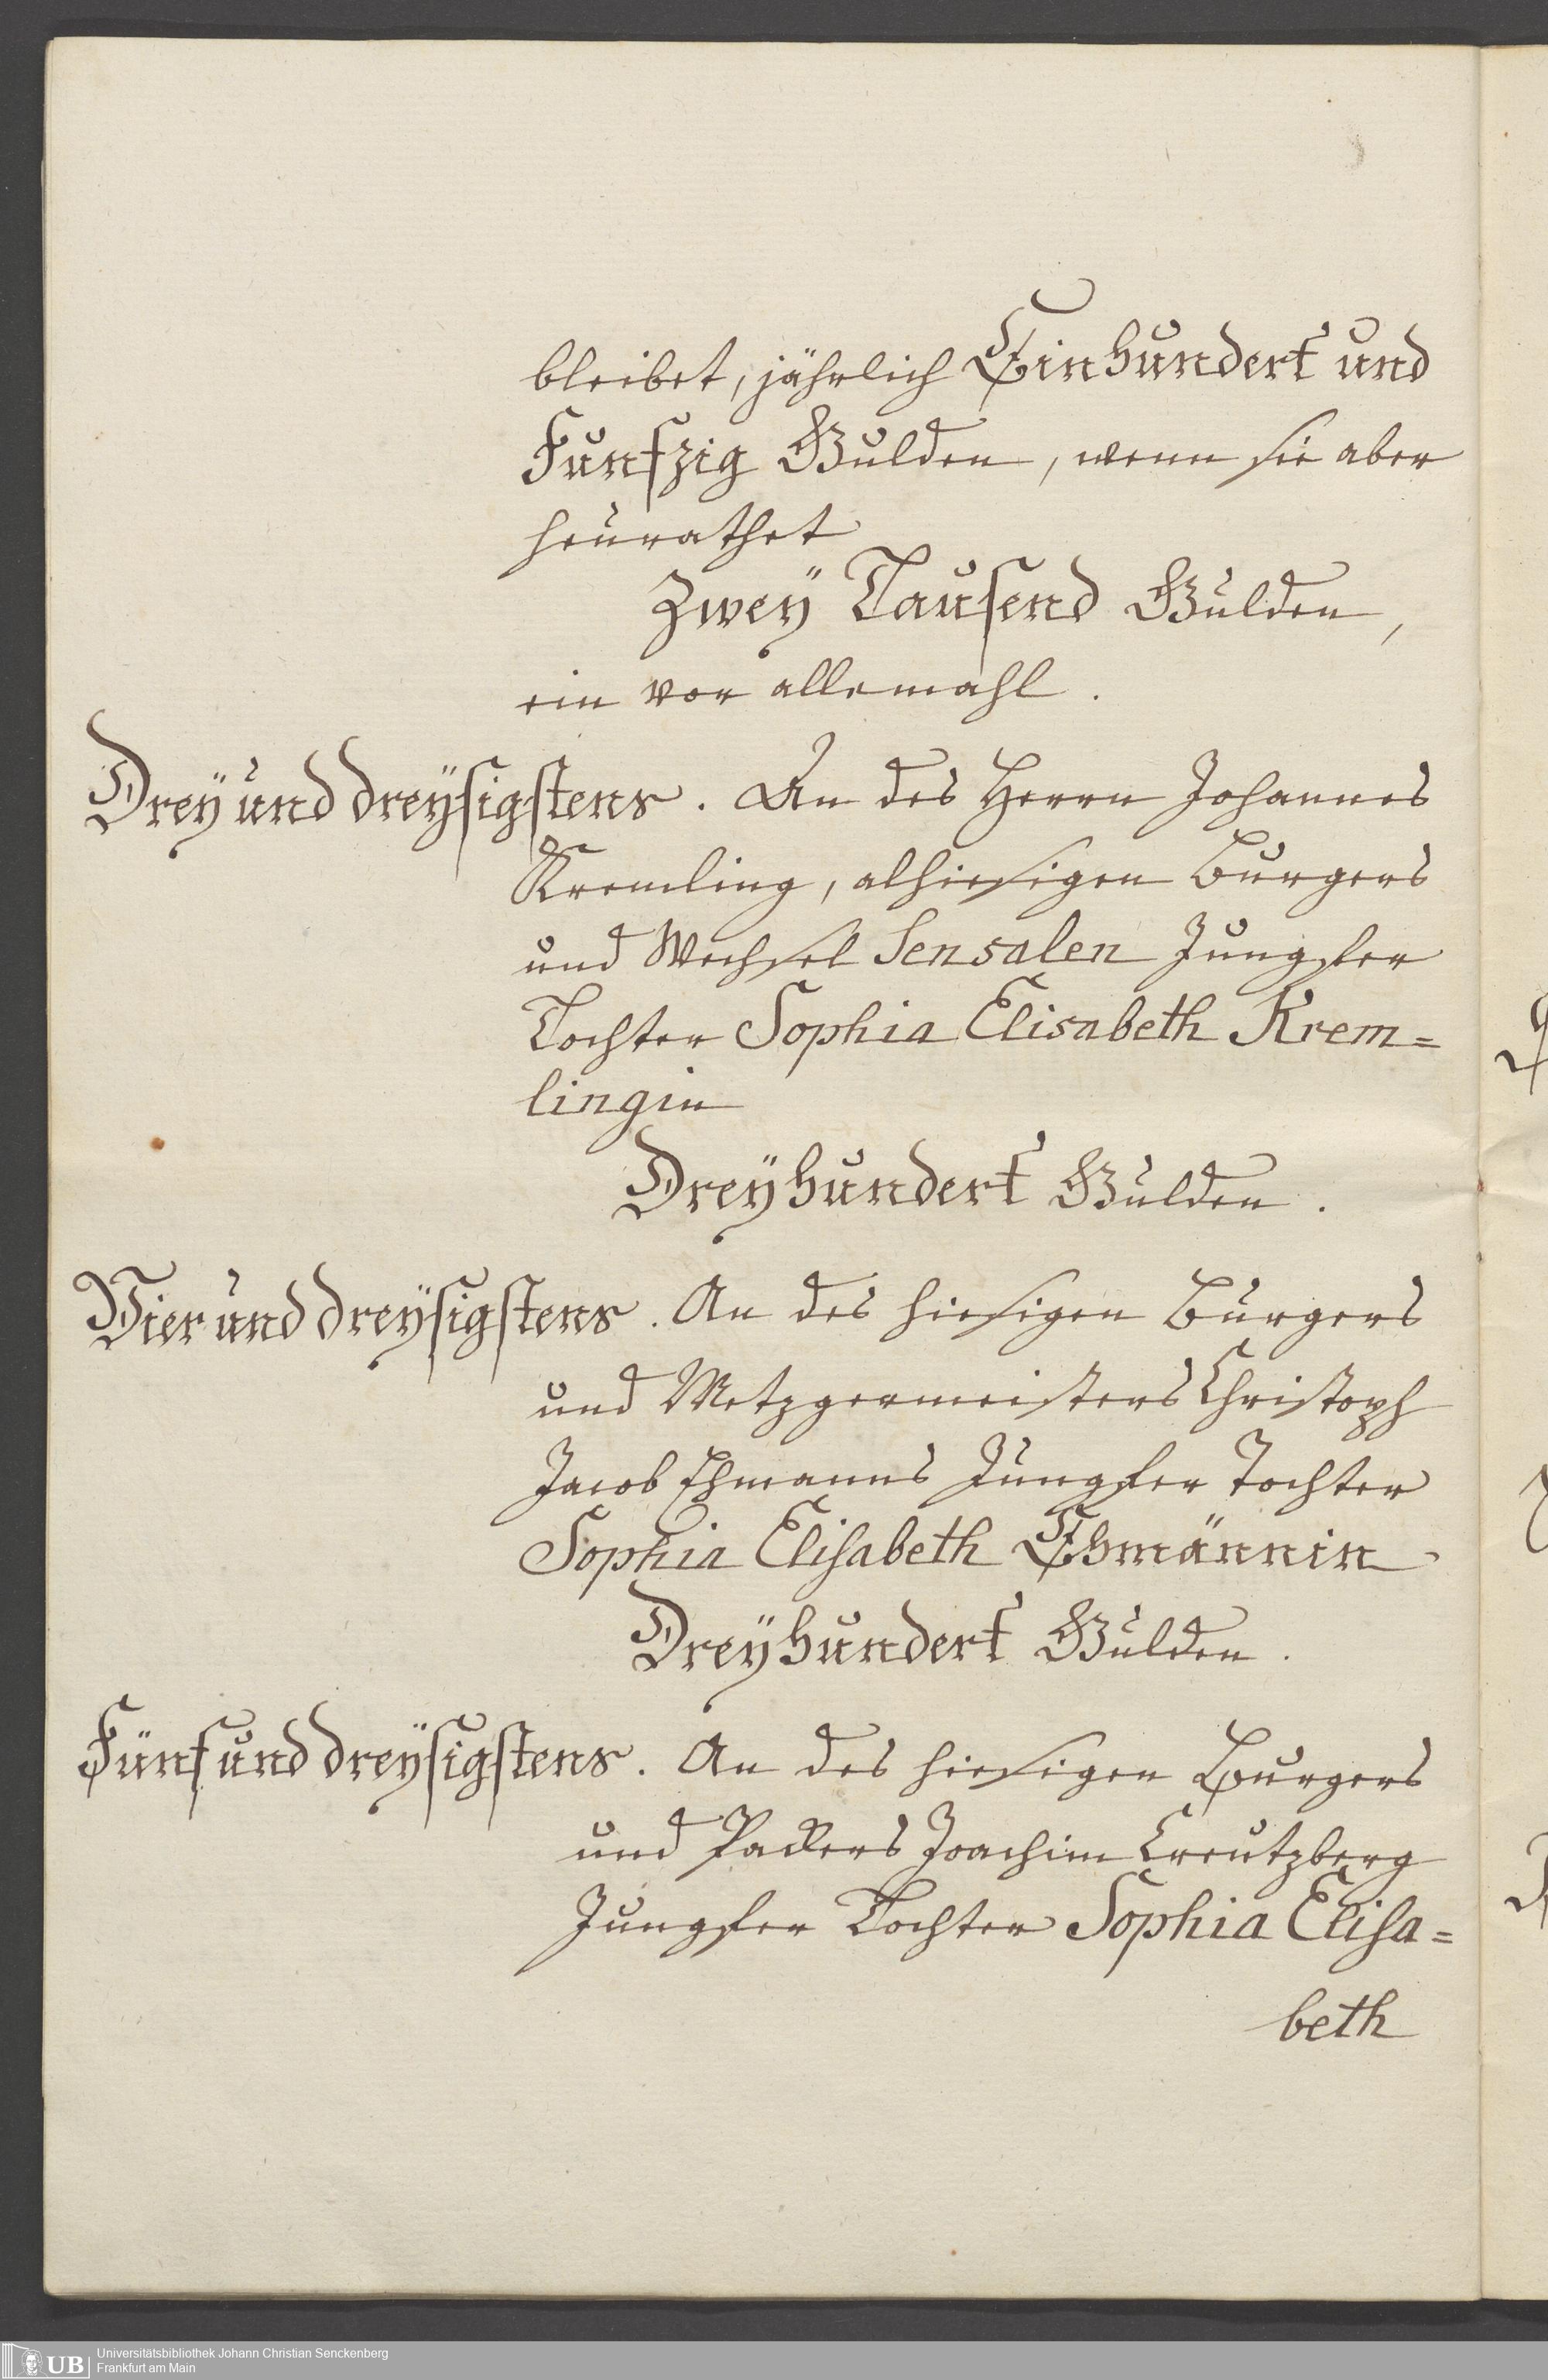 bleibet, jährlich Einhundert und
Funfzig Gulden, wenn sie aber
heurathet
Zweÿ Tausend Gulden,
ein vor allemahl.
Dreÿ und dreÿsigstens. An des Herrn Johannes
Kremling, alhiesigen Burgers
und Wechsel Sensalen Jungfer
Tochter Sophia Elisabeth Krem=
lingin
Dreÿhundert Gulden.
Vier und dreÿsigstens. An des hiesigen Burgers
und Metzgermeisters Christoph
Jacob Ehmanns Jungfer Tochter
Sophia Elisabeth Ehmännin
Dreÿhundert Gulden.
Fünf und dreÿsigstens. An des hiesigen Burgers
und Packers Joachim Creutzberg
Jungfer Tochter Sophia Elisa=
beth
UB
Universitätsbibliothek Johann Christian Senckenberg
Frankfurt am Main